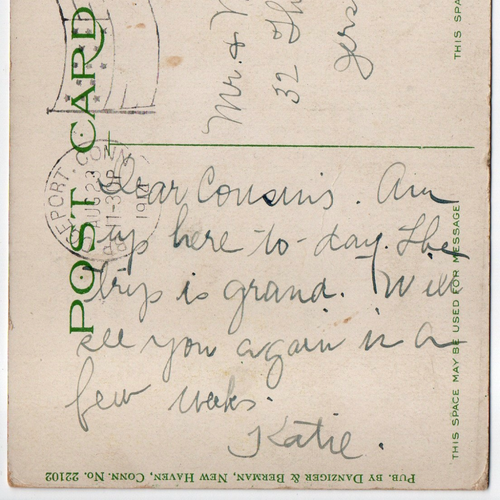 POST CARD
THIS SPACE MAY BE USED FOR MESSAGE
THIS SPA
Mr. &
32
Jers
EPORT, CONN
AUG 23
11-30P
Dear Cousins. Am
up here to-day. The
trip is grand. Will
see you again in a
few weeks.
Katie.
PUB. BY DANZIGER & BERMAN, NEW HAVEN, CONN. No. 22102